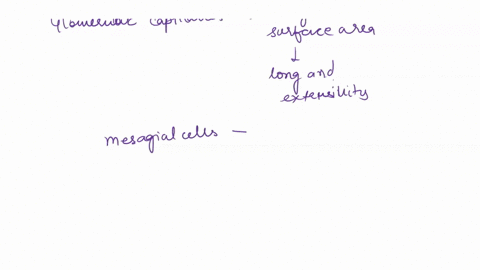 Glomerular capillaries
surface area
↓
long and
extensibility
mesagial cells —